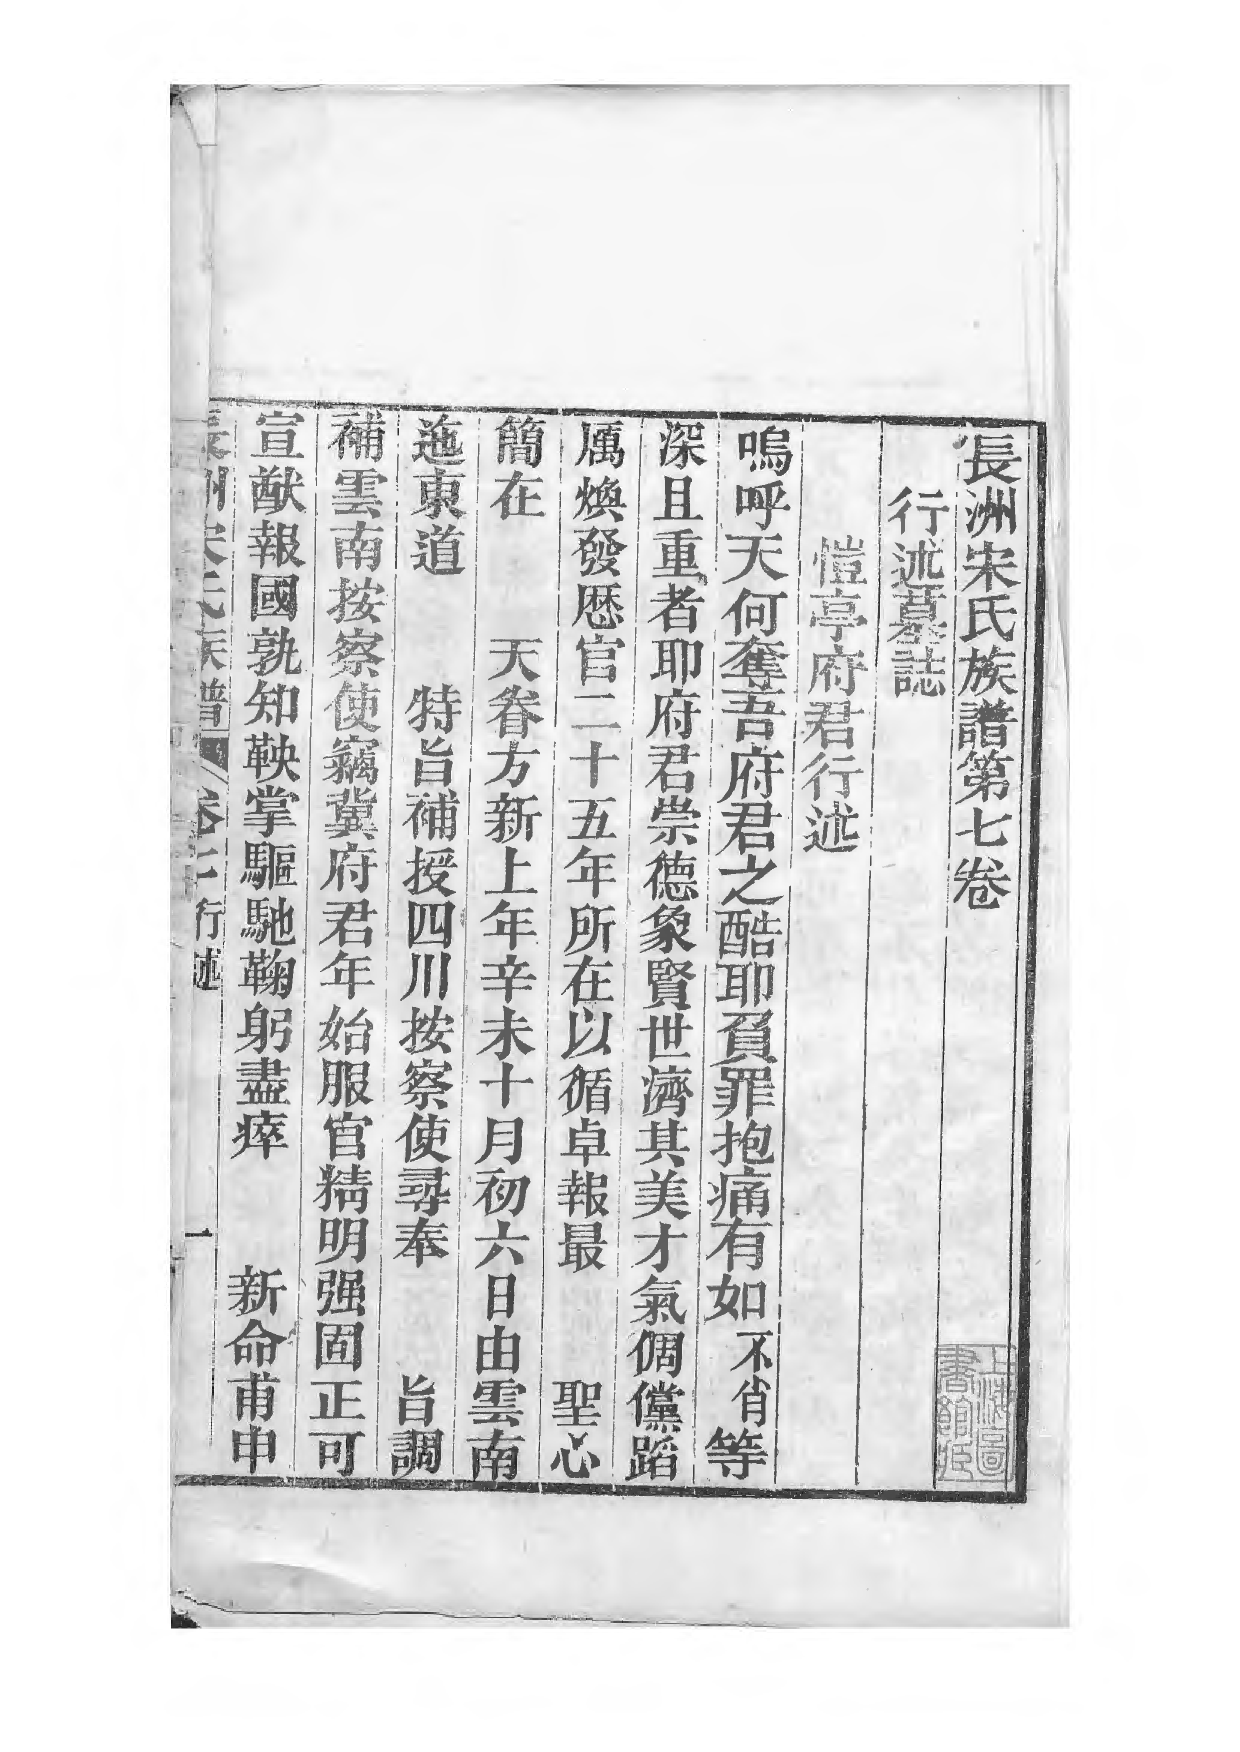 長洲宋氏族譜第七卷
行述墓誌
愷亭府君行述
嗚呼天何奪吾府君之酷耶負罪抱痛有如不肖等
深且重者耶府君崇德象賢世濟其美才氣倜儻蹈
厲煥發歷官二十五年所在以循卓報最　聖心
簡在　天眷方新上年辛未十月初六日由雲南
迤東道　特旨補授四川按察使尋奉　旨調
補雲南按察使竊冀府君年始服官精明强固正可
宣猷報國孰知鞅掌驅馳鞠躬盡瘁　新命甫申
長洲宋氏族譜　卷七　行述　一
上海圖書館藏